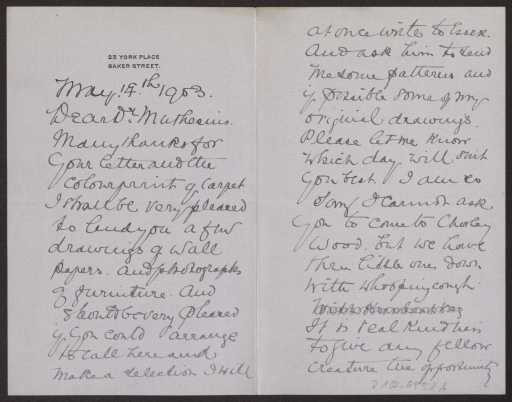 23 YORK PLACE
BAKER STREET.
May 14th 1903.
Dear Dr. Muthesius.
Many thanks for
your letter and the
colourprint of carpet
I shall be very pleased
to lend you a few
drawings of wall
papers. and photographs
of furniture. And
should be very pleased
if you could arrange
to call here and
make a selection I will
at once write to Essex.
And ask him to send
me some patterns and
if possible some of my
original drawings.
Please let me know
which day will suit
you best. I am so
sorry I cannot ask
you to come to Chorley
Wood. but we have
three little ones down
with whooping cough
It is real kindness
to give any fellow
creature the opportunity